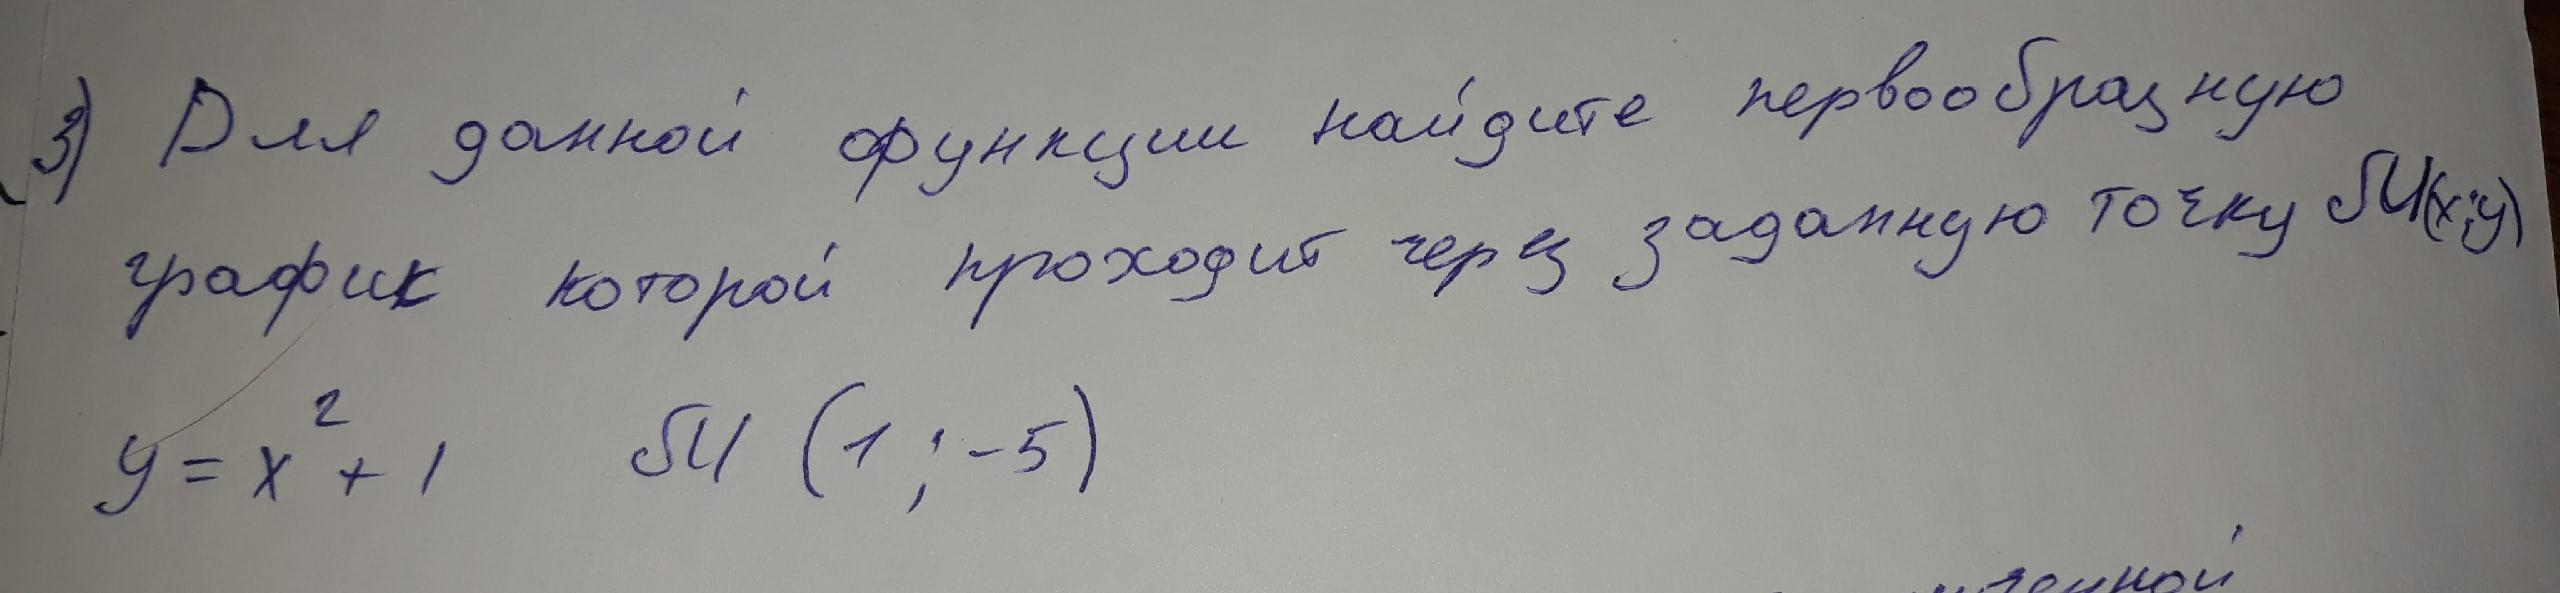 3) Для данной функции найдите первообразную
график которой проходит через заданную точку M(x;y)
y = x² + 1 M (1 ; -5)